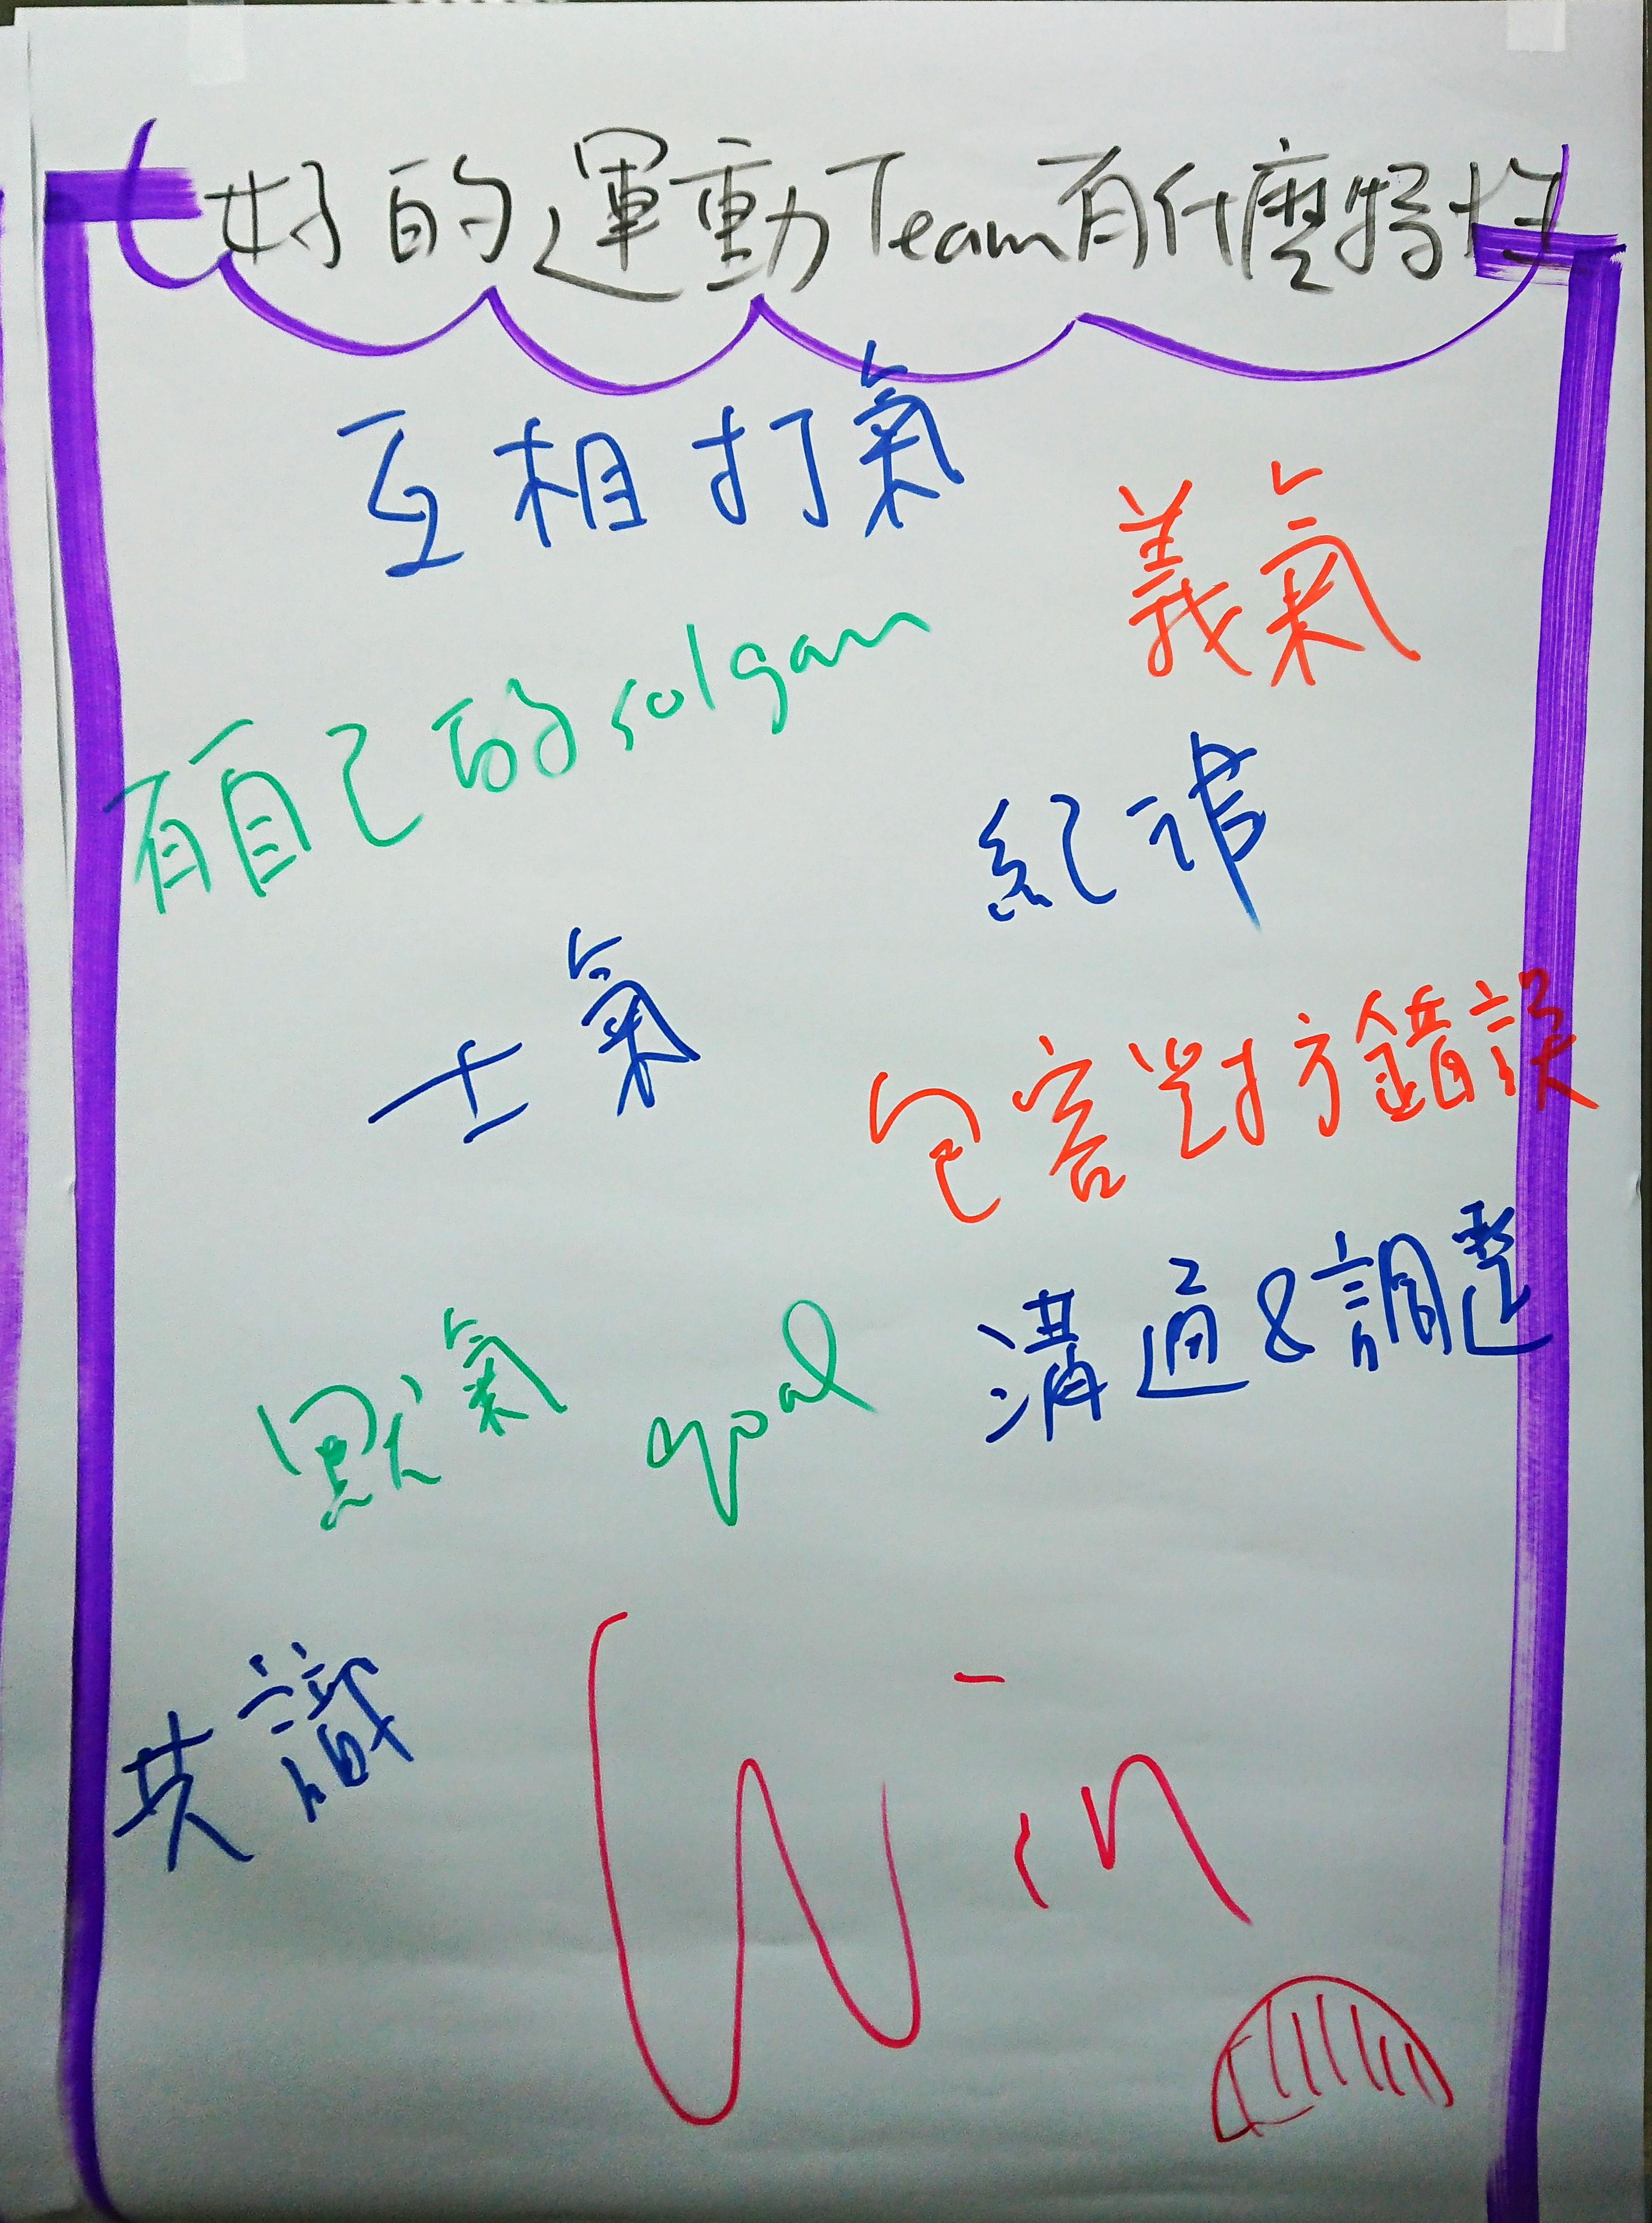 好的運動Team有什麼特性
互相打氣
義氣
有自己的solgan
紀律
士氣
包容對方錯誤
溝通&調整
默氣
goal
共識
Win